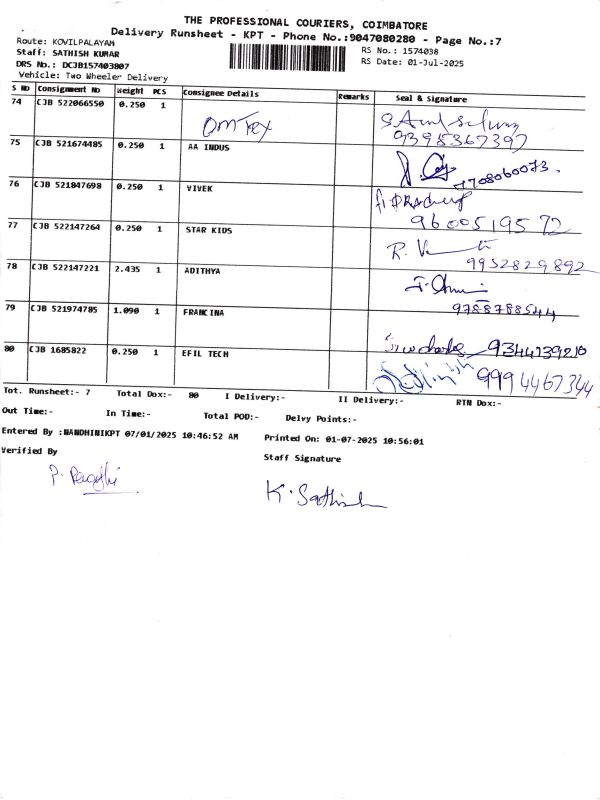 THE PROFESSIONAL COURIERS, COIMBATORE
Delivery Runsheet - KPT - Phone No.:9047080280 - Page No.:7
Route: KOVILPALAYAM
RS No.: 1574038
Staff: SATHISH KUMAR
RS Date: 01-Jul-2025
DRS No.: DCJB157403807
Vehicle: Two Wheeler Delivery
S No Consignment No Weight PCS Consignee Details Remarks Seal & Signature
74 CJB 522066550 0.250 1 OM TEX
9395367397
75 CJB 521674485 0.250 1 AA INDUS
7708060073.
76 CJB 521847698 0.250 1 VIVEK
9600519572
77 CJB 522147264 0.250 1 STAR KIDS R.
9952829892
78 CJB 522147221 2.435 1 ADITHYA
9788788544
79 CJB 521974785 1.090 1 FRANCINA
9344739210
80 CJB 1685822 0.250 1 EFIL TECH
9994467344
Tot. Runsheet:- 7 Total Dox:- 80 I Delivery:- II Delivery:- RTN Dox:-
Out Time:- In Time:- Total POD:- Delvy Points:-
Entered By :NANDHINIKPT 07/01/2025 10:46:52 AM Printed On: 01-07-2025 10:56:01
Verified By Staff Signature
P.
K. Sathish